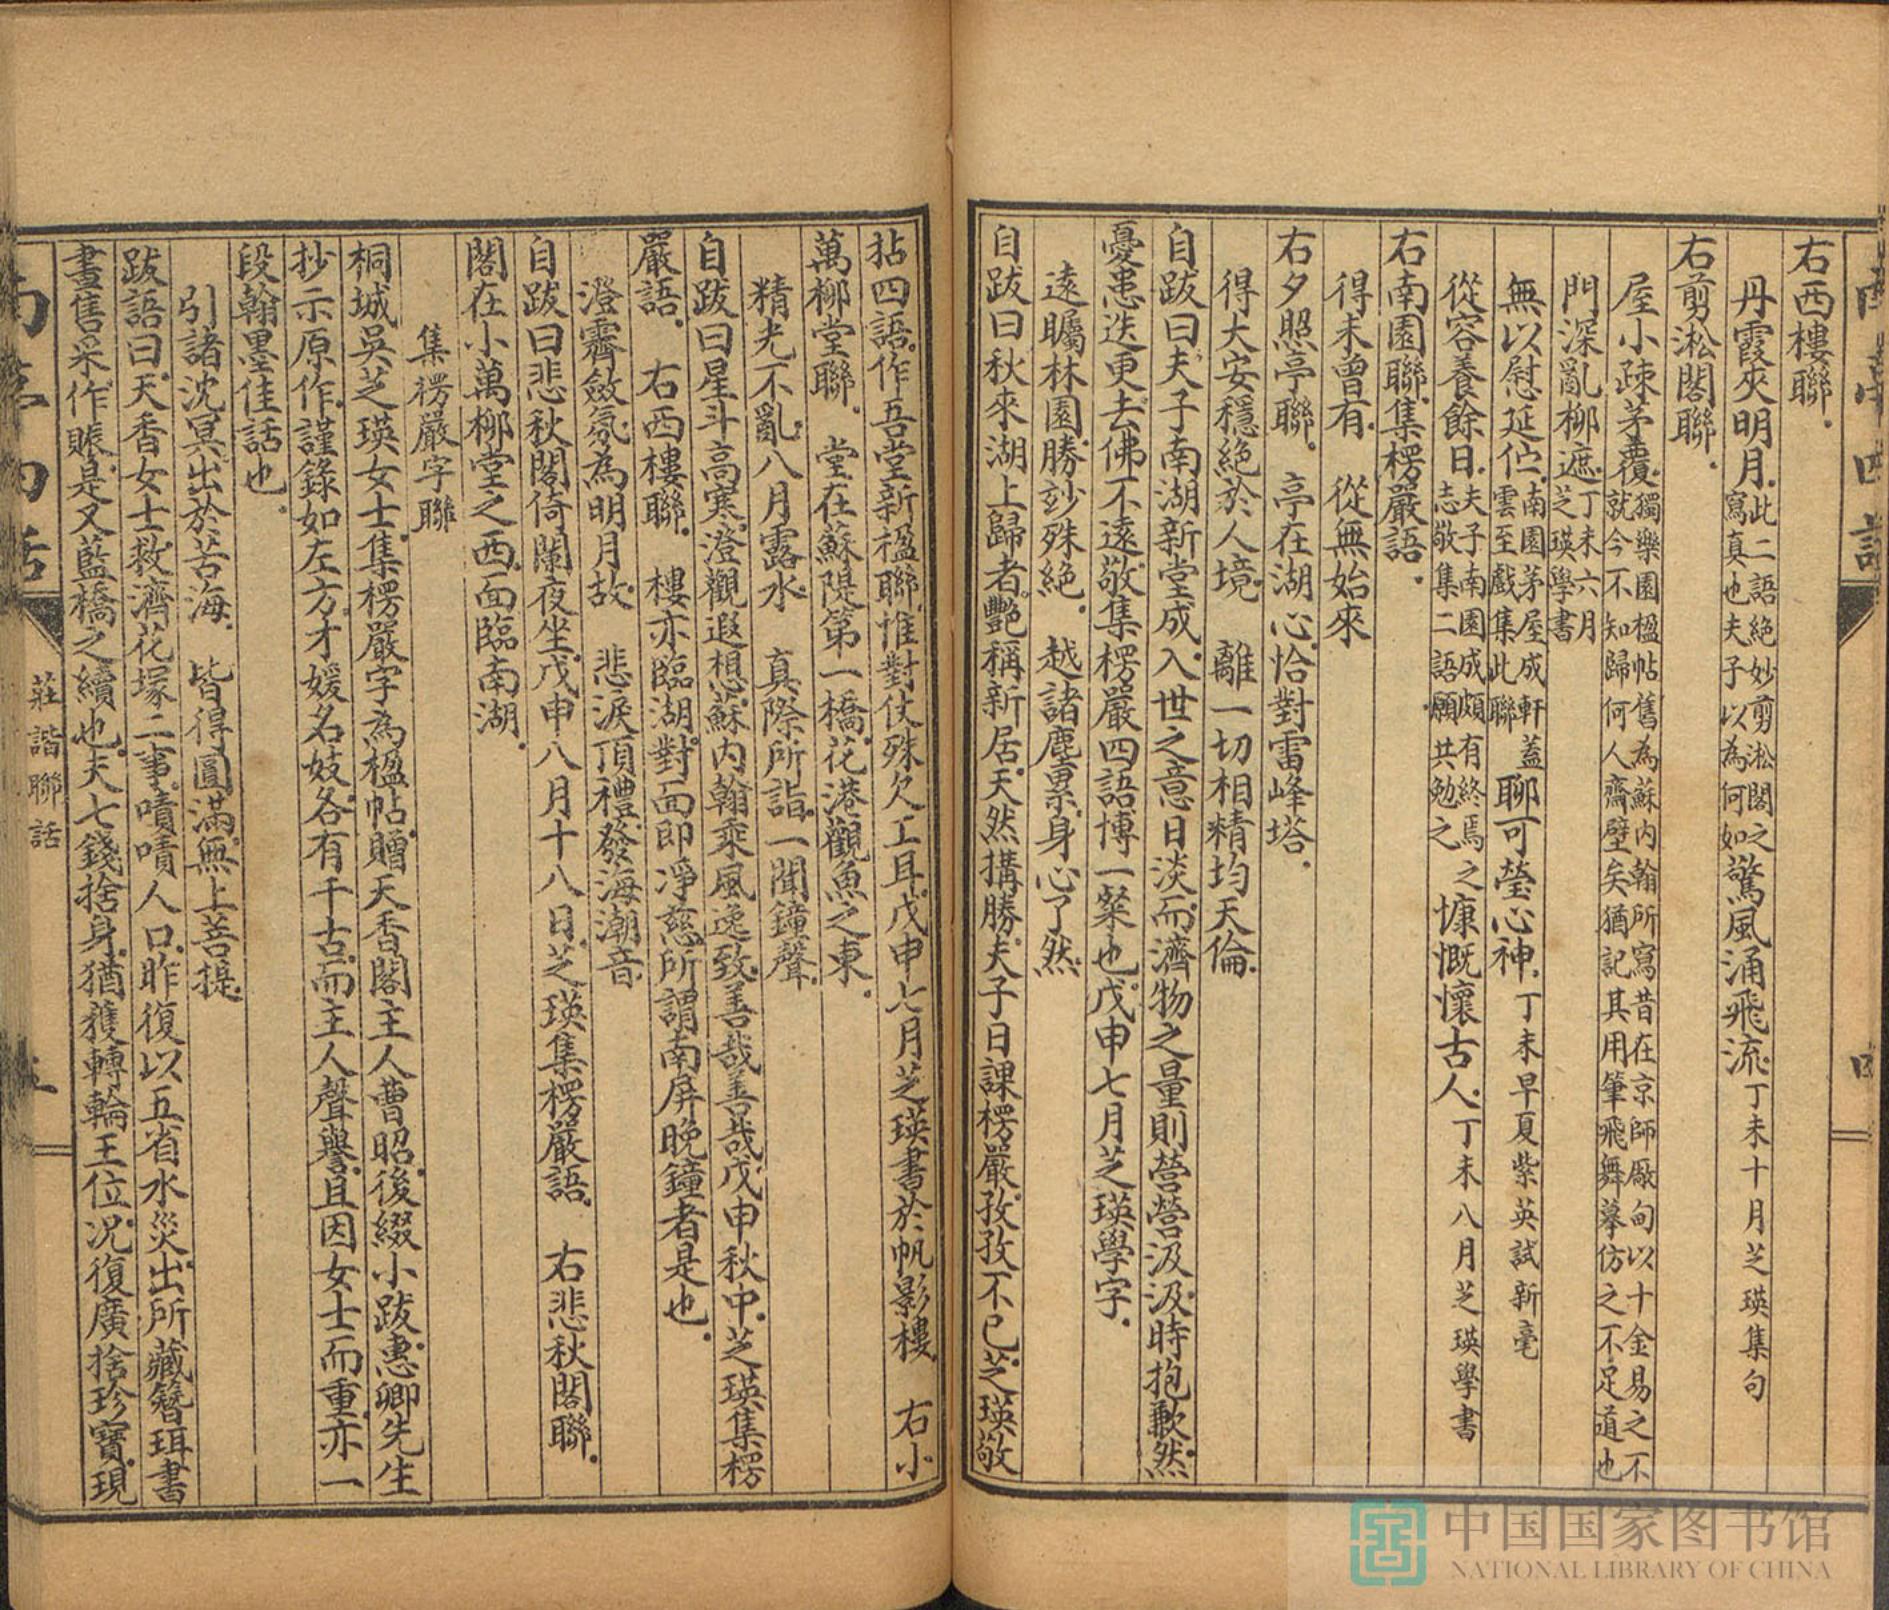 右西樓聯.
丹霞夾明月.此二語絕妙剪淞閣之寫真也夫子以為何如驚風涌飛流.丁未十月芝瑛集句
右剪淞閣聯.
屋小疎茅覆.獨樂園楹帖舊為蘇内翰所寫昔在京師廠甸以十金易之不就今不知歸何人齋壁矣猶記其用筆飛舞摹仿之不足道也
門深亂柳遮.丁未六月芝瑛學書
無以慰延伫.南園茅屋成軒蓋雲至戲集此聯聊可瑩心神.丁未早夏紫英試新毫
從容養餘日.夫子南園成頗有終焉之志敬集二語願共勉之慷慨懷古人.丁未八月芝瑛學書
右南園聯.集楞嚴語.
得未曾有.　從無始來
右夕照亭聯.　亭在湖心.恰對雷峰塔.
得大安穩絕於人境.　離一切相精均天倫.
自跋曰.夫子南湖新堂成.入世之意日淡.而濟物之量則營營汲汲.時抱歉然.
憂患迭更.去佛不遠.敬集楞嚴四語博一粲也.戊申七月芝瑛學字.
遠矚林園.勝妙殊絕.　越諸塵累.身心了然.
自跋曰.秋來湖上歸者.艷稱新居.天然搆勝.夫子日課楞嚴.孜孜不已.芝瑛敬
拈四語.作吾堂新楹聯.惟對仗殊欠工耳.戊申七月芝瑛書於帆影樓.　右小
萬柳堂聯.　堂在蘇隄第一橋.花港觀魚之東.
精光不亂.八月露水.　真際所詣.一聞鐘聲.
自跋曰.星斗高寒.澄觀遐想.蘇内翰乘風逸致.善哉善哉.戊申秋中.芝瑛集楞
嚴語.　右西樓聯.　樓亦臨湖.對面即凈慈.所謂南屏晚鐘者是也.
澄霽斂氛.為明月故.　悲淚頂禮.發海潮音.
自跋曰.悲秋閣倚闌夜坐.戊申八月十八日.芝瑛集楞嚴語.　右悲秋閣聯.
閣在小萬柳堂之西.面臨南湖.
集楞嚴字聯
桐城吳芝瑛女士.集楞嚴字為楹帖.贈天香閣主人曹昭.後綴小跋.惠卿先生
抄示原作.謹錄如左方.才媛名妓.各有千古.而主人聲譽.且因女士而重.亦一
段翰墨佳話也.
引諸沈冥.出於苦海.　皆得圓滿.無上菩提.
跋語曰.天香女士.救濟花塚二事.嘖嘖人口.昨復以五省水災.出所藏簪珥書
畫.售采作賬.是又藍橋之續也.夫七錢捨身.猶獲轉輪王位.况復廣捨珍寶.現
莊諧聯話